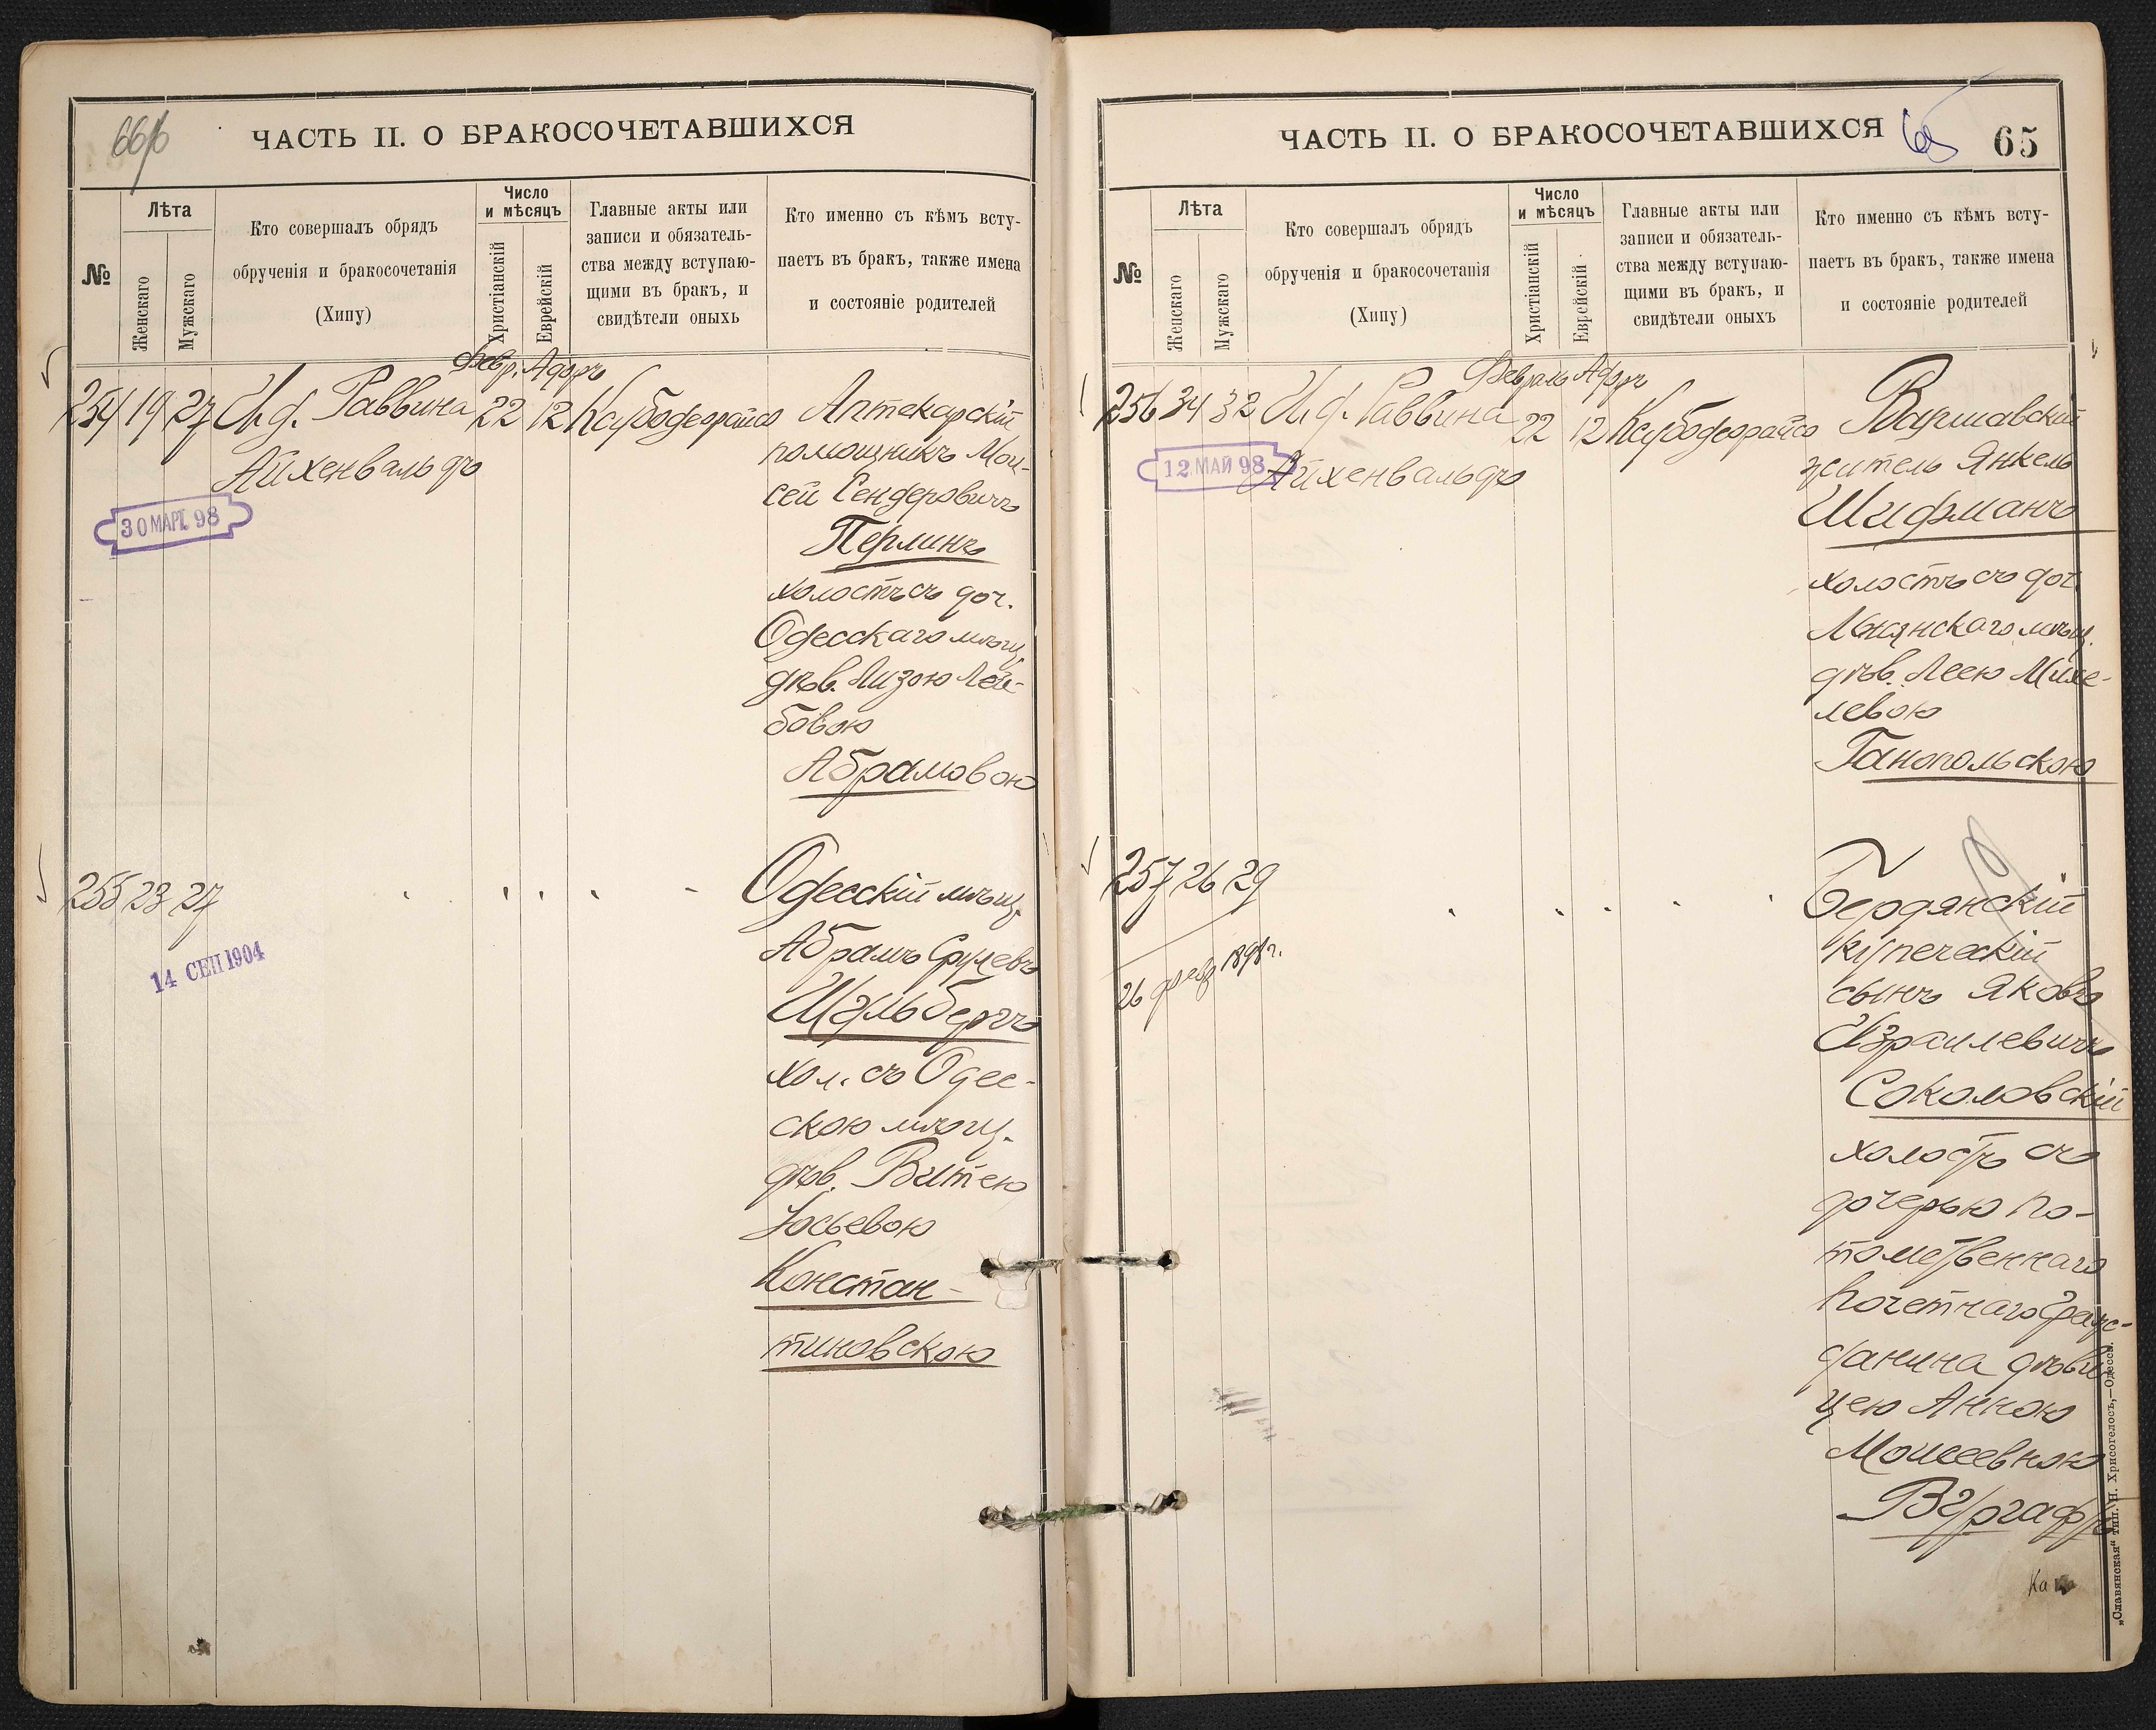 66/б
ЧАСТЬ II. О БРАКОСОЧЕТАВШИХСЯ
№
Лѣта
Женскаго
Мужскаго
Кто совершалъ обрядъ
обрученія и бракосочетанія
(Хипу)
Число
и мѣсяцъ
Христіанскій
Еврейскій
Главные акты или
записи и обязатель-
ства между вступаю-
щими въ бракъ, и
свидѣтели оныхь
Кто именно съ кѣмъ всту-
паетъ въ бракъ, также имена
и состояніе родителей
Февр. Адаръ
254 19 27 И.д. Раввина 22 12 Ксубодеорайсо Аптекарскій
Айхенвальдъ
помощникъ Мои-
сей Сендеровичъ
30 МАРТ. 98
Перлинъ
холостъ съ доч.
Одесскаго мѣщ.
дѣв. Лизою Лей-
бовою
Абрамовою
255 23 27 Одесскій мѣщ.
14 СЕН 1904
Абрамъ Срулевъ
Шульбергъ
хол. съ Одес-
скою мѣщ.
дѣв. Витею
Іосьевою
Констан-
тиновскою
ЧАСТЬ II. О БРАКОСОЧЕТАВШИХСЯ
65
65
№
Лѣта
Женскаго
Мужскаго
Кто совершалъ обрядъ
обрученія и бракосочетанія
(Хипу)
Число
и мѣсяцъ
Христіанскій
Еврейскій
Главные акты или
записи и обязатель-
ства между вступаю-
щими въ бракъ, и
свидѣтели оныхъ
Кто именно съ кѣмъ всту-
паетъ въ бракъ, также имена
и состояніе родителей
Февраль Адаръ
256 34 32 И.д. Раввина 22 12 Ксубодеорайсо Варшавскій
12 МАЙ 98
Айхенвальдъ
житель Янкель
Шифманъ
холостъ съ доч.
мѣщ.
дѣв. Леею Михе-
левою
Ганопольскою
257 26 29 Бердянскій
26 февр 1898 г.
купеческій
сынъ Яковъ
Израилевичъ
Соколовскій
холостъ съ
дочерью по-
томственнаго
почетнаго граж-
данина дѣви-
цею Анною
Моисеевною
Вургафтъ
Ка
„Славянская" тип. Н. Хрисогелосъ,—Одесса.